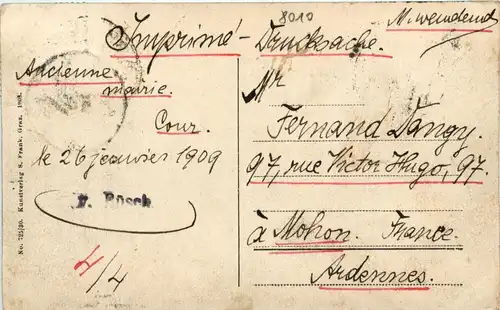 8010
Imprimé - Drucksache.
Ancienne
mairie.
Cour.
le 26 janvier 1909
F. Rösch
4/4
Mr
Fernand Dangy.
97, rue Victor Hugo, 97.
à Mohon. France
Ardennes.
No. 725/20. Kunstverlag S. Frank, Graz, 1908.